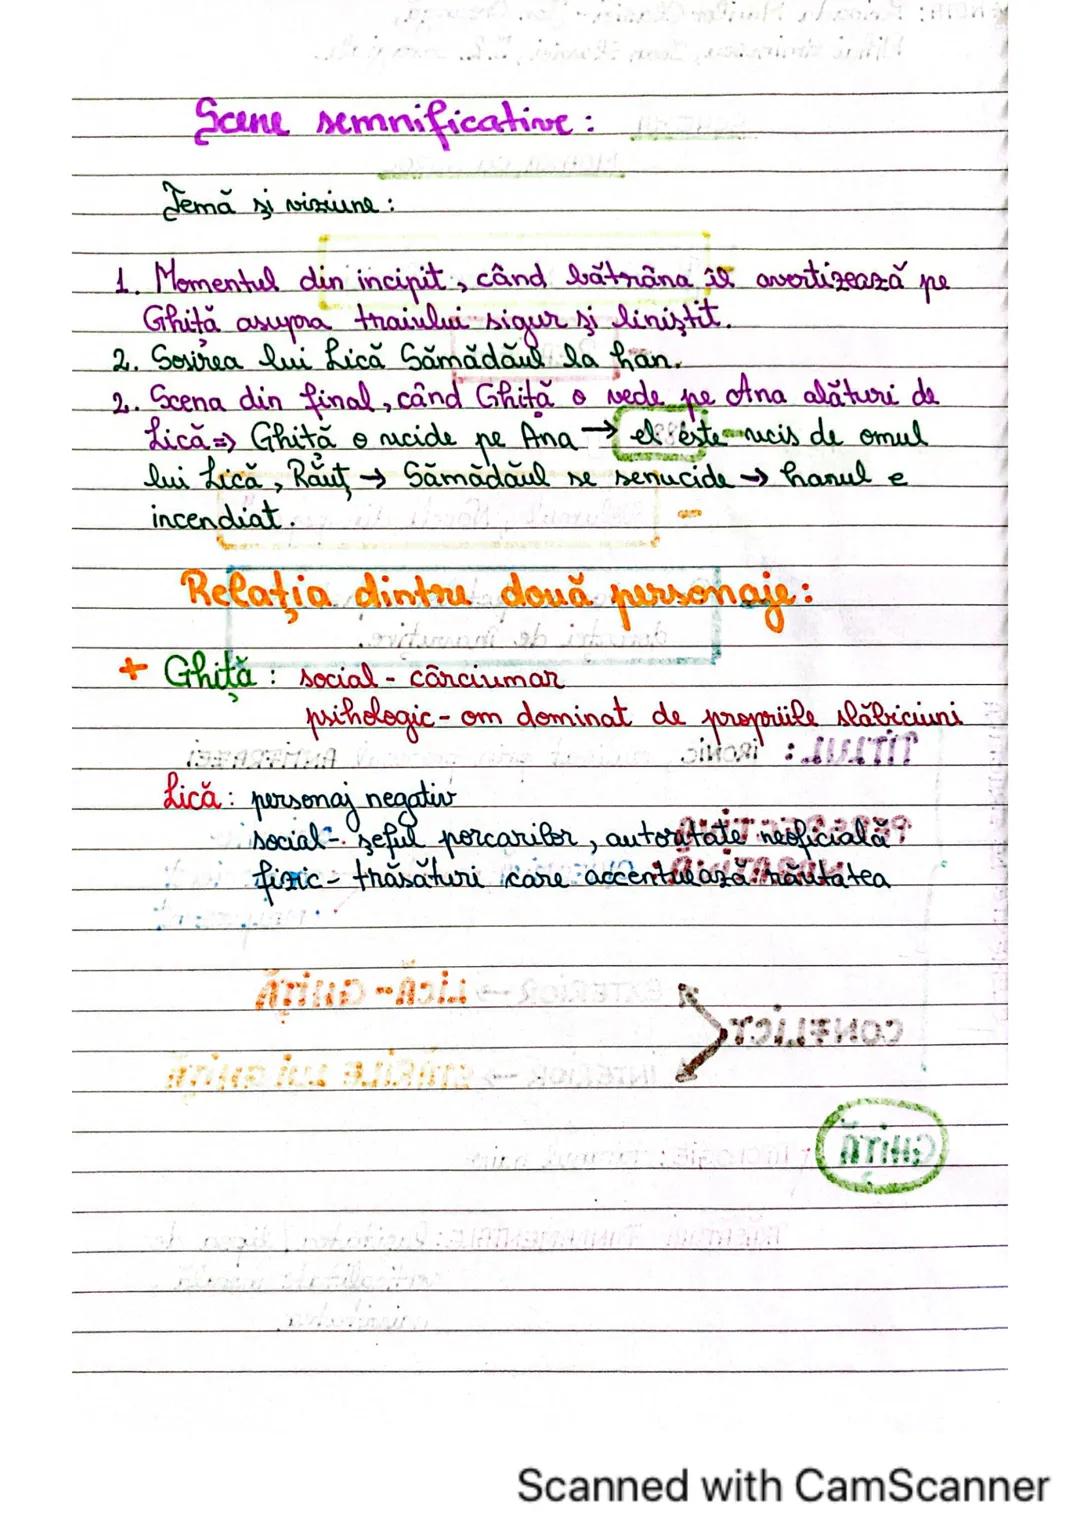 Scene semnificative:
Temă și viziune:
1. Momentul din incipit, când bătrâna îl avertizează pe
Ghiță asupra traiului sigur și liniștit.
2. Sosirea lui Lică Sămădăul la han.
2. Scena din final, când Ghiță o vede pe Ana alături de
Lică => Ghiță o ucide pe Ana → el este ucis de omul
lui Lică, Răuț → Sămădăul se senucide → hanul e
incendiat.
Relația dintre două personaje:
+ Ghiță: social - cârciumar
psihologic - om dominat de propriile slăbiciuni
Lică: personaj negativ
social - șeful porcarilor, autoritate neoficială
fizic - trăsături care accentuează răutatea
TITLUL: IRONIC
CONFLICT
EXTERIOR → LICĂ - GHIȚĂ
INTERIOR → STĂRILE LUI GHIȚĂ
GHIȚĂ
Scanned with CamScanner